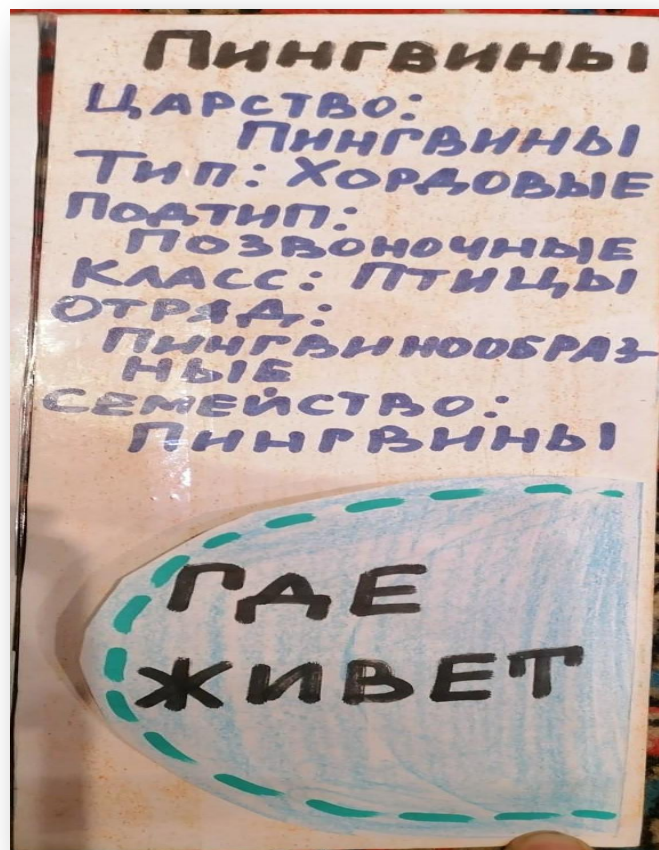 Пингвины
Царство:
Пингвины
Тип: Хордовые
Подтип:
Позвоночные
Класс: Птицы
Отряд:
Пингвинообраз-
ные
Семейство:
Пингвины
Где
живет